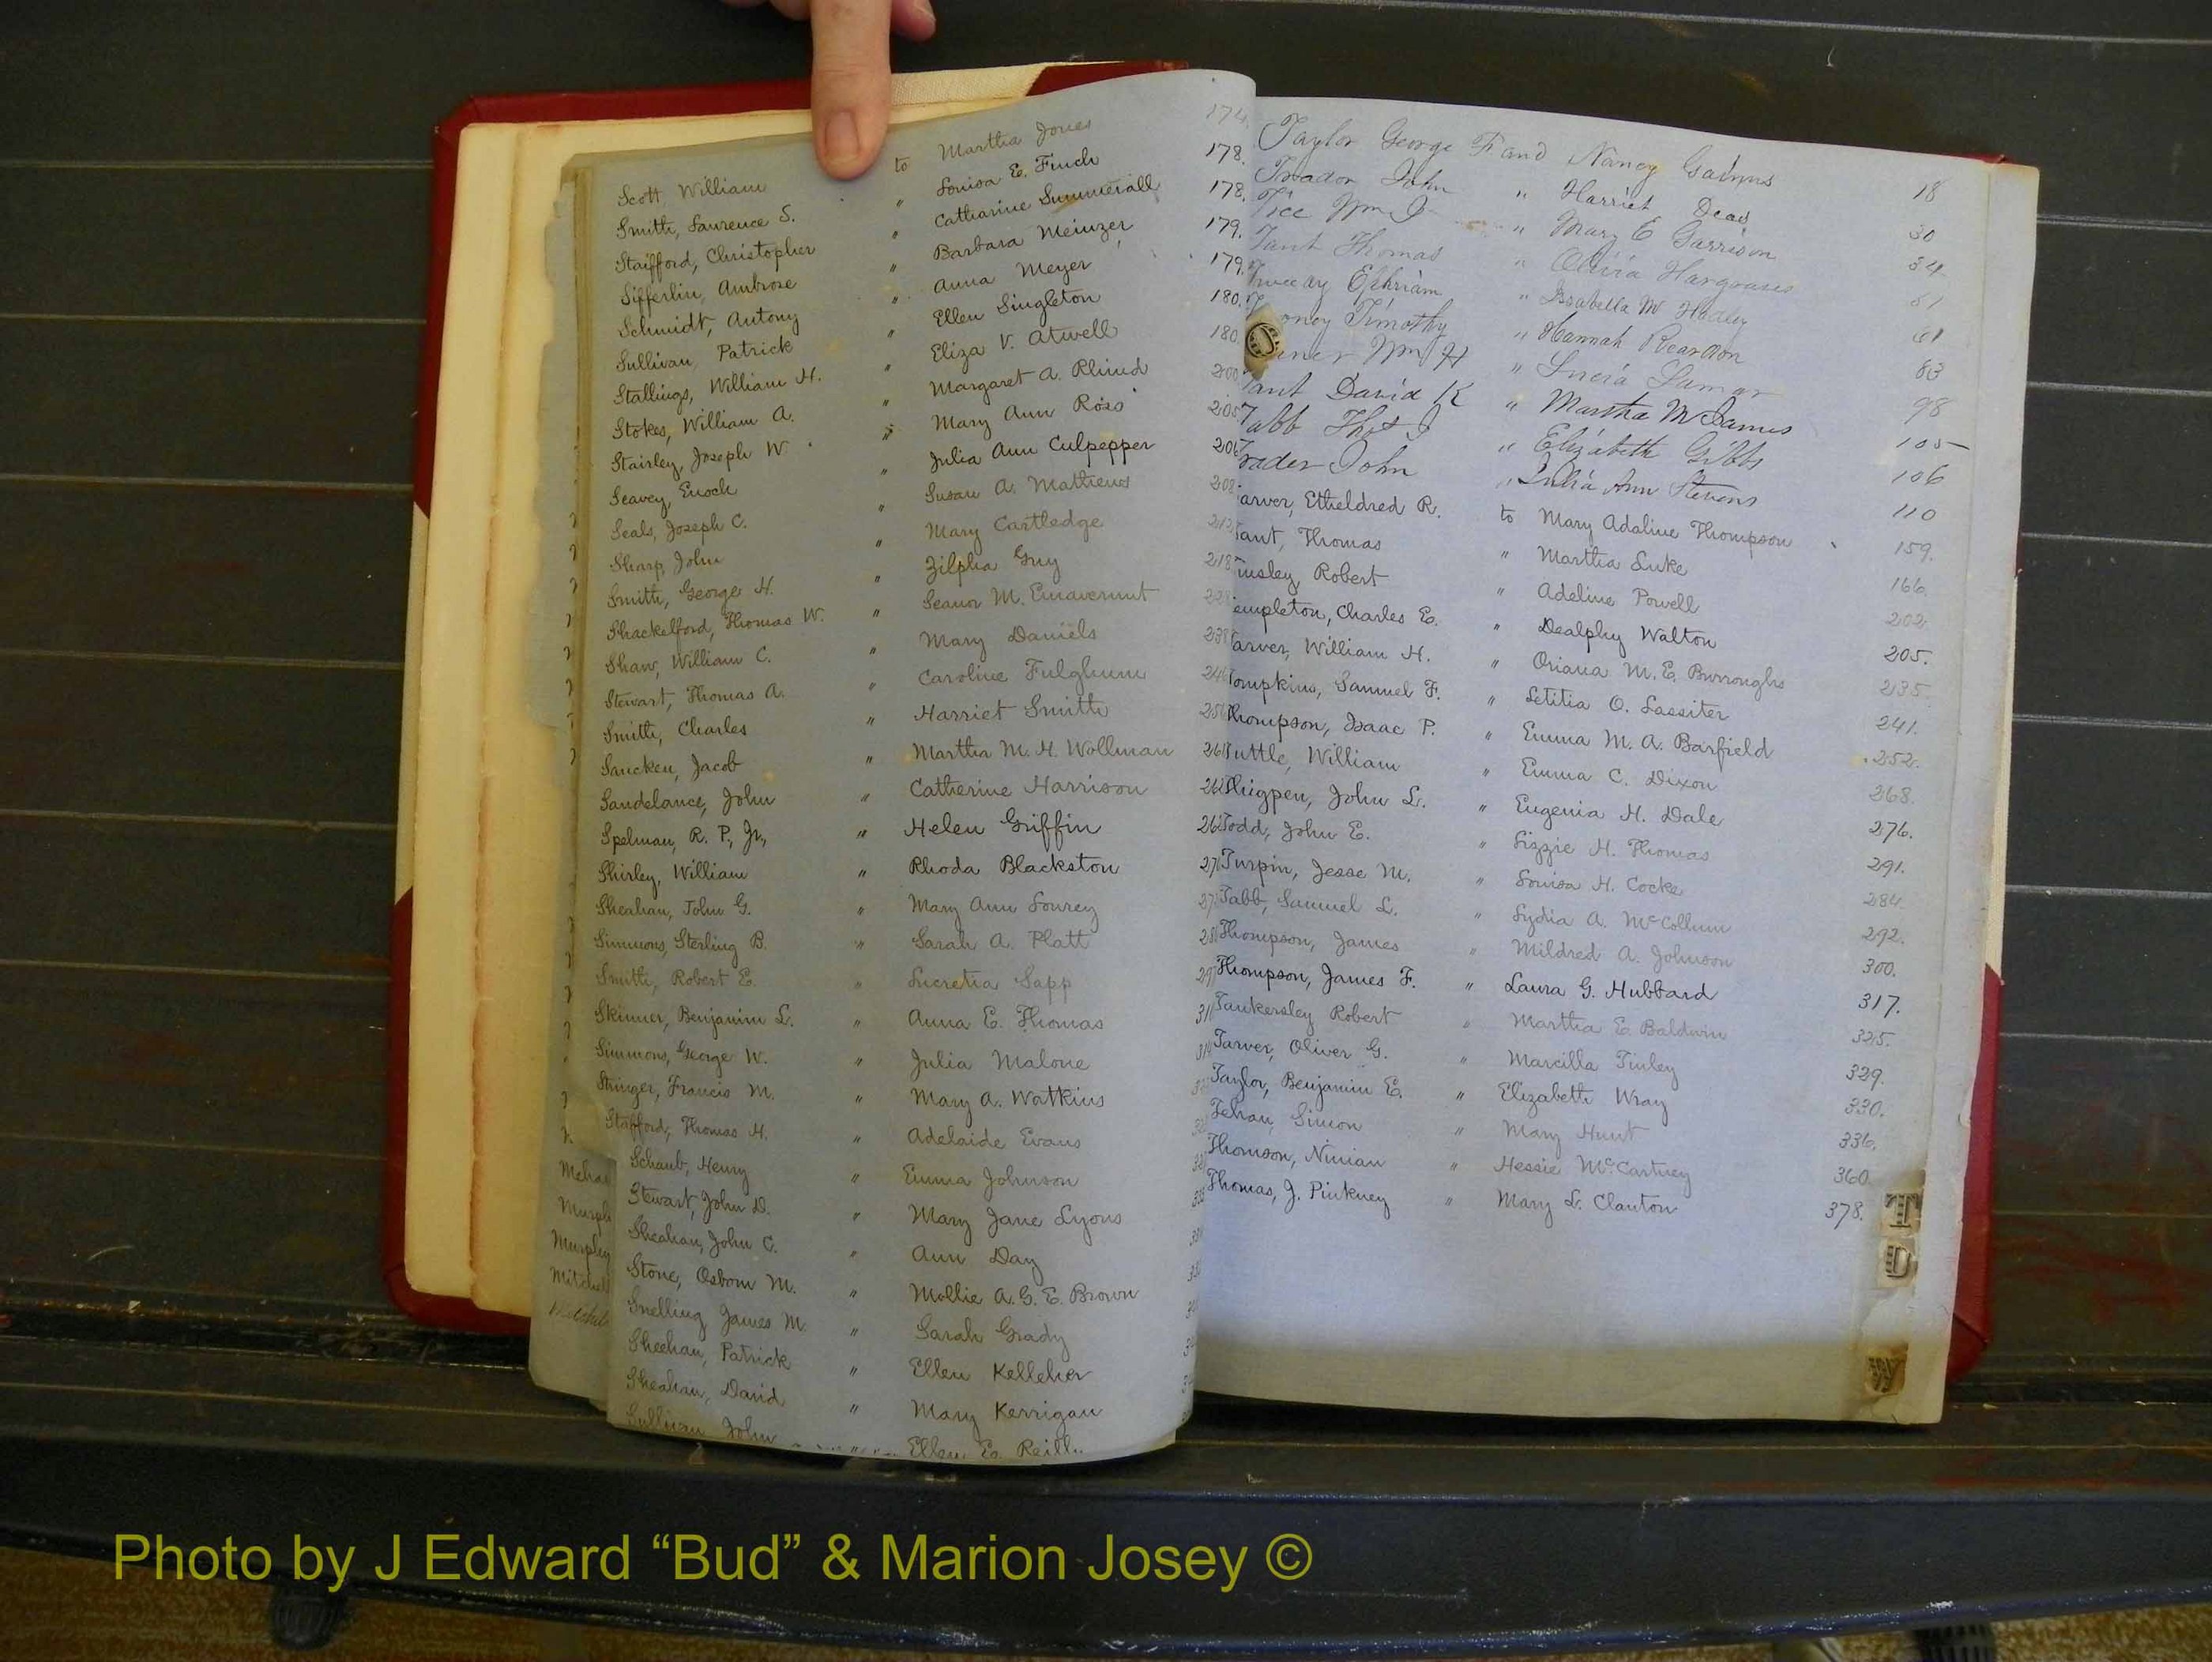 Scott William to Martha Jones 174.
Smith, Laurence S. " Louisa E. Finch 178.
Stafford, Christopher " Catharine Summerall 178.
Sifferlin, Ambrose " Barbara Meinzer 179.
Schmidt, Antony " Anna Meyer 179.
Sullivan, Patrick " Ellen Singleton 180.
Stallings, William H. " Eliza V. Atwell 180.
Stokes, William A. " Margaret A. Rhind 200
Stairley, Joseph W. " Mary Ann Ross 205
Seavey, Enoch " Julia Ann Culpepper 206
Seals, Joseph C. " Susan A. Mathews 208
Sharp, John " Mary Cartledge
Smith, George H. " Zilpha Guy 218
Shackelford, Thomas W. " Leanor M.
Shaw, William C. " Mary Daniels
Stewart, Thomas A. " Caroline Fulghum
Smith, Charles " Harriet Smith
Sancken, Jacob " Martha M. H. Wollman
Sandelance, John " Catherine Harrison
Spelman, R. P., Jr., " Helen Griffin
Shirley, William " Rhoda Blackston
Sheahan, John G. " Mary Ann Lowrey
Simmons, Sterling B. " Sarah A. Platt
Smith, Robert E. " Lucretia Sapp
Skinner, Benjamin L. " Anna E. Thomas
Simmons, George W. " Julia Malone
Stringer, Francis M. " Mary A. Watkins
Stafford, Thomas H. " Adelaide Evans
Schaub, Henry " Emma Johnson
Stewart, John D. " Mary Jane Lyons
Sheahan, John C. " Ann Day
Stone, Osborn M. " Mollie A. G. E. Brown
Snelling, James M. " Sarah Grady
Sheehan, Patrick " Ellen Kelleher
Sheahan, David " Mary Kerrigan
Sullivan John " Ellen E. Reill
Mehar
Murph
Murphy
Mitchell
Taylor George F and Nancy Gaines 18
Trador John " Harriet Dead 30
Tice Wm J " Mary E Garrison 34
Tant Thomas " Olivia Hargraves 51
Tweedy Ephriam " Isabella M Healey 61
oney Timothy " Hannah Reardon 63
ner Wm H " Lucia Lamar 98
Tant David K " Martha M James 105
Tabb Thos J " Elizabeth Gibbs 106
Trader John " Julia Ann Stevens 110
Tarver, Etheldred R. to Mary Adaline Thompson 159.
Tant, Thomas " Martha Luke 166.
insley, Robert " Adeline Powell 202
empleton, Charles E. " Dealphy Walton 205.
Tarver, William H. " Oriana M. E. Burroughs 235.
Tompkins, Samuel F. " Letitia O. Lassiter 241.
Thompson, Isaac P. " Emma M. A. Barfield 252.
Tuttle, William " Emma C. Dixon 268.
Thigpen, John L. " Eugenia H. Dale 276.
Todd, John E. " Lizzie H. Thomas 291.
Turpin, Jesse M. " Louisa H. Cocke 284.
Tabb, Samuel L. " Lydia A. McCollum 292.
Thompson, James " Mildred A. Johnson 300.
Thompson, James F. " Laura G. Hubbard 317.
Tankersley Robert " Martha E. Baldwin 325.
Tarver, Oliver G. " Marcilla Tinley 329.
Taylor, Benjamin E. " Elizabeth Wray 330.
Tehan, Simon " Mary Hunt 336.
Thomson, Ninian " Hessie McCartney 360.
Thomas, J. Pinkney " Mary L. Clanton 378.
T
W
Photo by J Edward “Bud” & Marion Josey ©